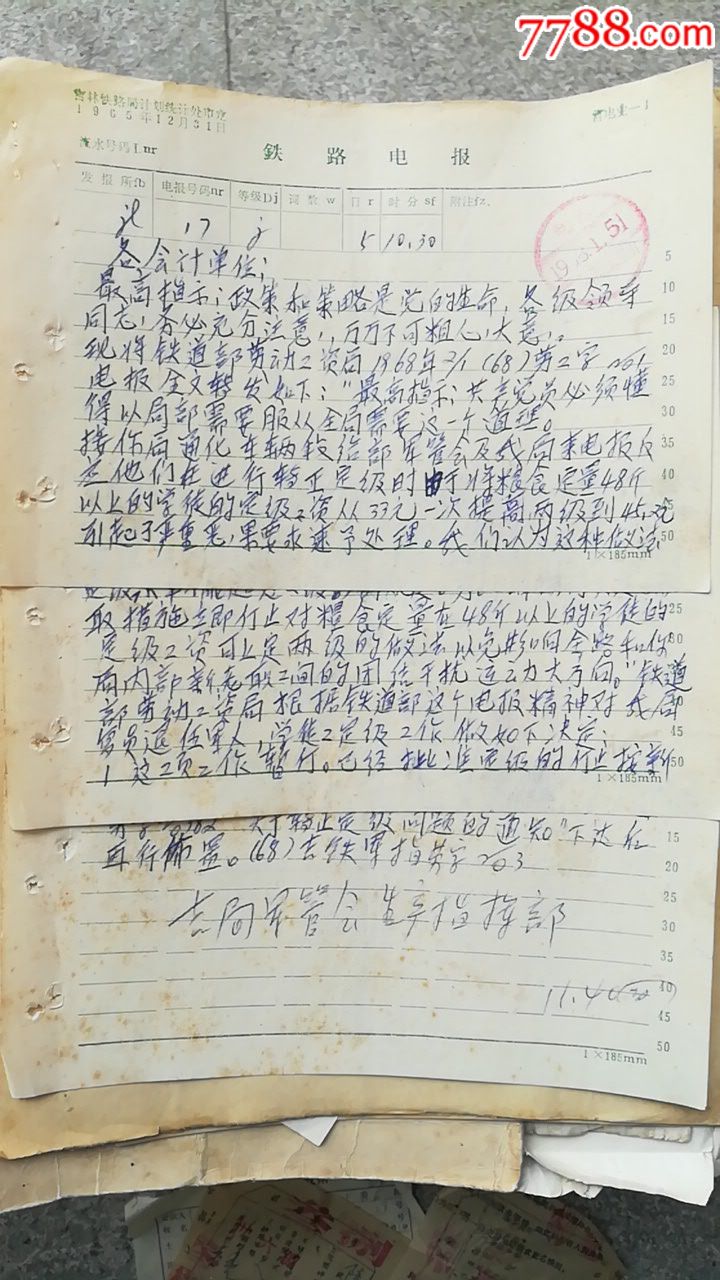 7788.com
吉林铁路局计划统计处印定
1965年12月31日
吉电业—1
流水号码Lnr
鉄 路 电 报
发报所fb 电报号码nr 等级Dj 词数w 日r 时分sf 附注fz.
17 5 10.30
各会计单位:
5
最高指示:政策和策略是党的生命,各级领导
10
同志,务必充分注意,万万不可粗心大意。
现将铁道部劳动工资局1968年2/1(68)劳工字201
20
电报全文转发如下:“最高指示:共产党员必须懂
25
得以局部需要服从全局需要这一个道理。
30
接你局通化车辆段给部军管会及我局来电报反
35
应他们在进行转正定级时由于将粮食定量48斤
40
以上的学徒的定级工资从33元一次提高两级到45.
引起了严重,要求速予处理。我们认为这种做法
50
1×185mm
取措施立即停止对粮食定量在48斤以上的学徒的
25
定级工资可上定两级的做法以免影响全路和你
30
局内部新老职工间的团结干扰运动大方向。”铁道
部劳动工资局根据铁道部这个电报精神对我局
复员退伍军人,学徒工定级工作做如下决定:
45
1 这工作暂停。已经批准定级的停止按新
50
1×185mm
关于转正定级问题的通知”下达后
15
再行佈置。(68)吉铁军指劳字203
20
25
吉局军管会生产指挥部
30
35
40
11.40
45
50
1×185mm